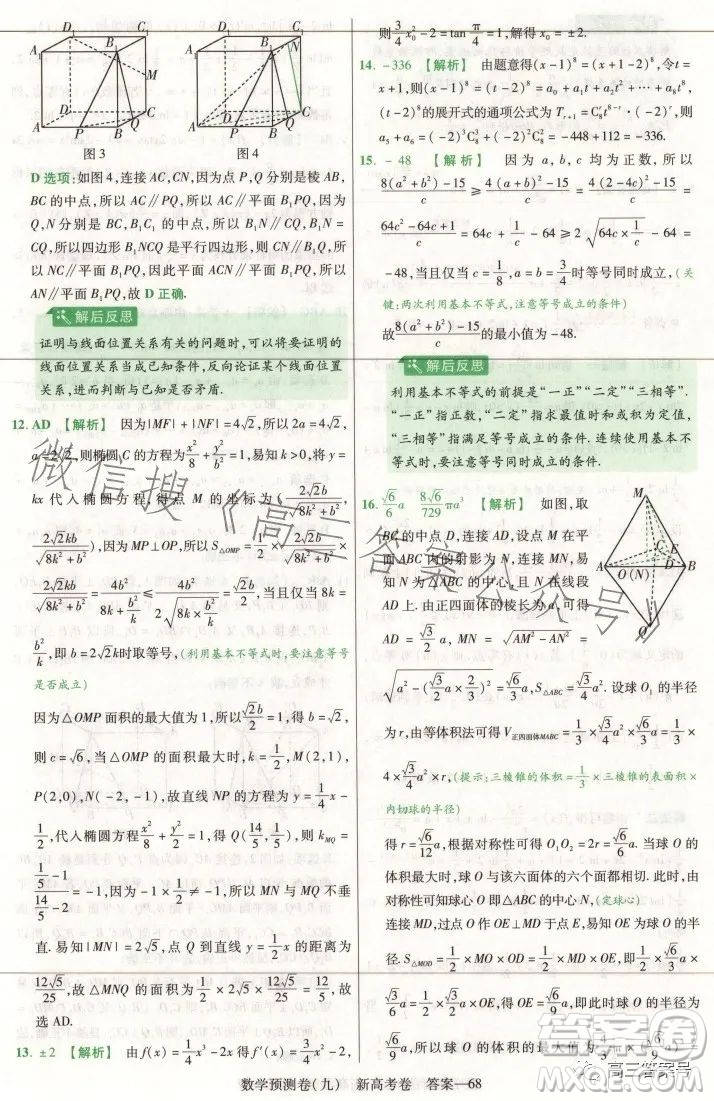 图 3
图 4
D 选项:如图 4,连接 AC,CN,因为点 P,Q 分别是棱 AB,
BC 的中点,所以 AC∥PQ,所以 AC∥平面 B₁PQ,因为
Q,N 分别是棱 BC,B₁C₁ 的中点,所以 B₁N∥CQ,B₁N =
CQ,所以四边形 B₁NCQ 是平行四边形,所以 B₁Q∥CN,
所以 CN∥平面 B₁PQ,因此平面 ACN∥平面 B₁PQ,所以
AN∥平面 B₁PQ,故 D 正确.
解后反思
证明与线面位置关系有关的问题时,可以将要证明的
线面位置关系当成已知条件,反向论证某个线面位置
关系,进而判断与已知是否矛盾.
12. AD 【解析】 因为|MF| + |NF| = 4√2,所以 2a = 4√2,
a = 2√2,则椭圆 C 的方程为 x²/8 + y²/b² = 1. 易知 k>0,将 y =
kx 代入椭圆方程,得点 M 的坐标为 (2√2b/√(8k² + b²),
2√2kb/√(8k² + b²)),因为 MP⊥OP,所以 S△OMP = 1/2 × 2√2b/√(8k² + b²) ×
2√2kb/√(8k² + b²) = 4b²/(8k + b²/k) ≤ 4b²/(2√(8k × b²/k)) = √2b/2,当且仅当 8k =
b²/k,即 b = 2√2k 时取等号,(利用基本不等式时,要注意等号
是否成立)
因为△OMP 面积的最大值为 1,所以 √2b/2 = 1,得 b = √2,
则 c = √6,当△OMP 的面积最大时,k = 1/2,M(2,1),
P(2,0),N(-2,-1),故直线 NP 的方程为 y = 1/4 x -
1/2,代入椭圆方程 x²/8 + y²/2 = 1,得 Q(14/5,1/5),则 k_MQ =
(1/5 - 1)/(14/5 - 2) = -1,所以 k_MQ · k_MN = -1/2,即 MN 与 MQ 不垂
直. 易知|MN| = 2√5,点 Q 到直线 y = 1/2 x 的距离为
12√5/25,故△MNQ 的面积为 1/2 × 2√5 × 12√5/25 = 12/5 = . 故
选 AD.
13. ±2 【解析】 由 f(x) = 1/4 x³ - 2x 得 f′(x) = 3/4 x² - 2,
则 3/4 x₀² - 2 = tan π/4 = 1,解得 x₀ = ±2.
14. -336 【解析】 由题意得(x-1)⁸ = (x+1-2)⁸,令 t
= x+1,则(x-1)⁸ = (t-2)⁸ = a₀ + a₁t + a₂t² + … + a₈t⁸,
(t-2)⁸ 的展开式的通项公式为 Tᵣ₊₁ = C₈ʳt⁸⁻ʳ · (-2)ʳ,则
a₅ + a₆ = (-2)³C₈³ + (-2)²C₈² = -448 + 112 = -336.
15. -48 【解析】 因为 a,b,c 均为正数,所以
(8(a² + b²) - 15)/c ≥ (4(a + b)² - 15)/c = (4(2 - 4c)² - 15)/c =
(64c² - 64c + 1)/c = 64c + 1/c - 64 ≥ 2√(64c × 1/c) - 64 =
-48,当且仅当 c = 1/8,a = b = 3/4 时等号同时成立,(关
键:两次利用基本不等式,注意等号成立的条件)
故 (8(a² + b²) - 15)/c 的最小值为 -48.
解后反思
利用基本不等式的前提是“一正”“二定”“三相等”.
“一正”指正数,“二定”指求最值时和或积为定值,
“三相等”指满足等号成立的条件. 连续使用基本不
等式时,要注意等号同时成立的条件.
16. √6/6 a 8√6/729 πa³ 【解析】 如图,取
BC 的中点 D,连接 AD,设点 M 在平
面 ABC 内的射影为 N,连接 MN,易
知 N 为△ABC 的中心,且 N 在线段
AD 上. 由正四面体的棱长为 a,可得
AD = √3/2 a,MN = √(AM² - AN²) =
√(a² - (√3/2 a × 2/3)²) = √6/3 a,S△ABC = √3/4 a². 设球 O₁ 的半径
为 r,由等体积法可得 V正四面体MABC = 1/3 × √3/4 a² × √6/3 a = 1/3 ×
4 × √3/4 a² × r,(提示:三棱锥的体积 = 1/3 × 三棱锥的表面积 ×
内切球的半径)
得 r = √6/12 a,根据对称性可得 O₁O₂ = 2r = √6/6 a. 当球 O 的
体积最大时,球 O 与该六面体的六个面都相切. 由
对称性可知球心 O 即△ABC 的中心 N,(定球心)
连接 MD,过点 O 作 OE⊥MD 于点 E,易知 OE 为球 O 的
半径. S△MOD = 1/2 × MO × OD = 1/2 × MD × OE,即 1/2 ×
√6/3 a × √3/6 a = 1/2 × √3/2 a × OE,得 OE = √6/9 a,即此时球 O 的半径为
√6/9 a,所以球 O 的体积为 4/3 π
数学预测卷(九) 新高考卷 答案—68
微信搜《高三答案公众号》
答案圈
高三答案号